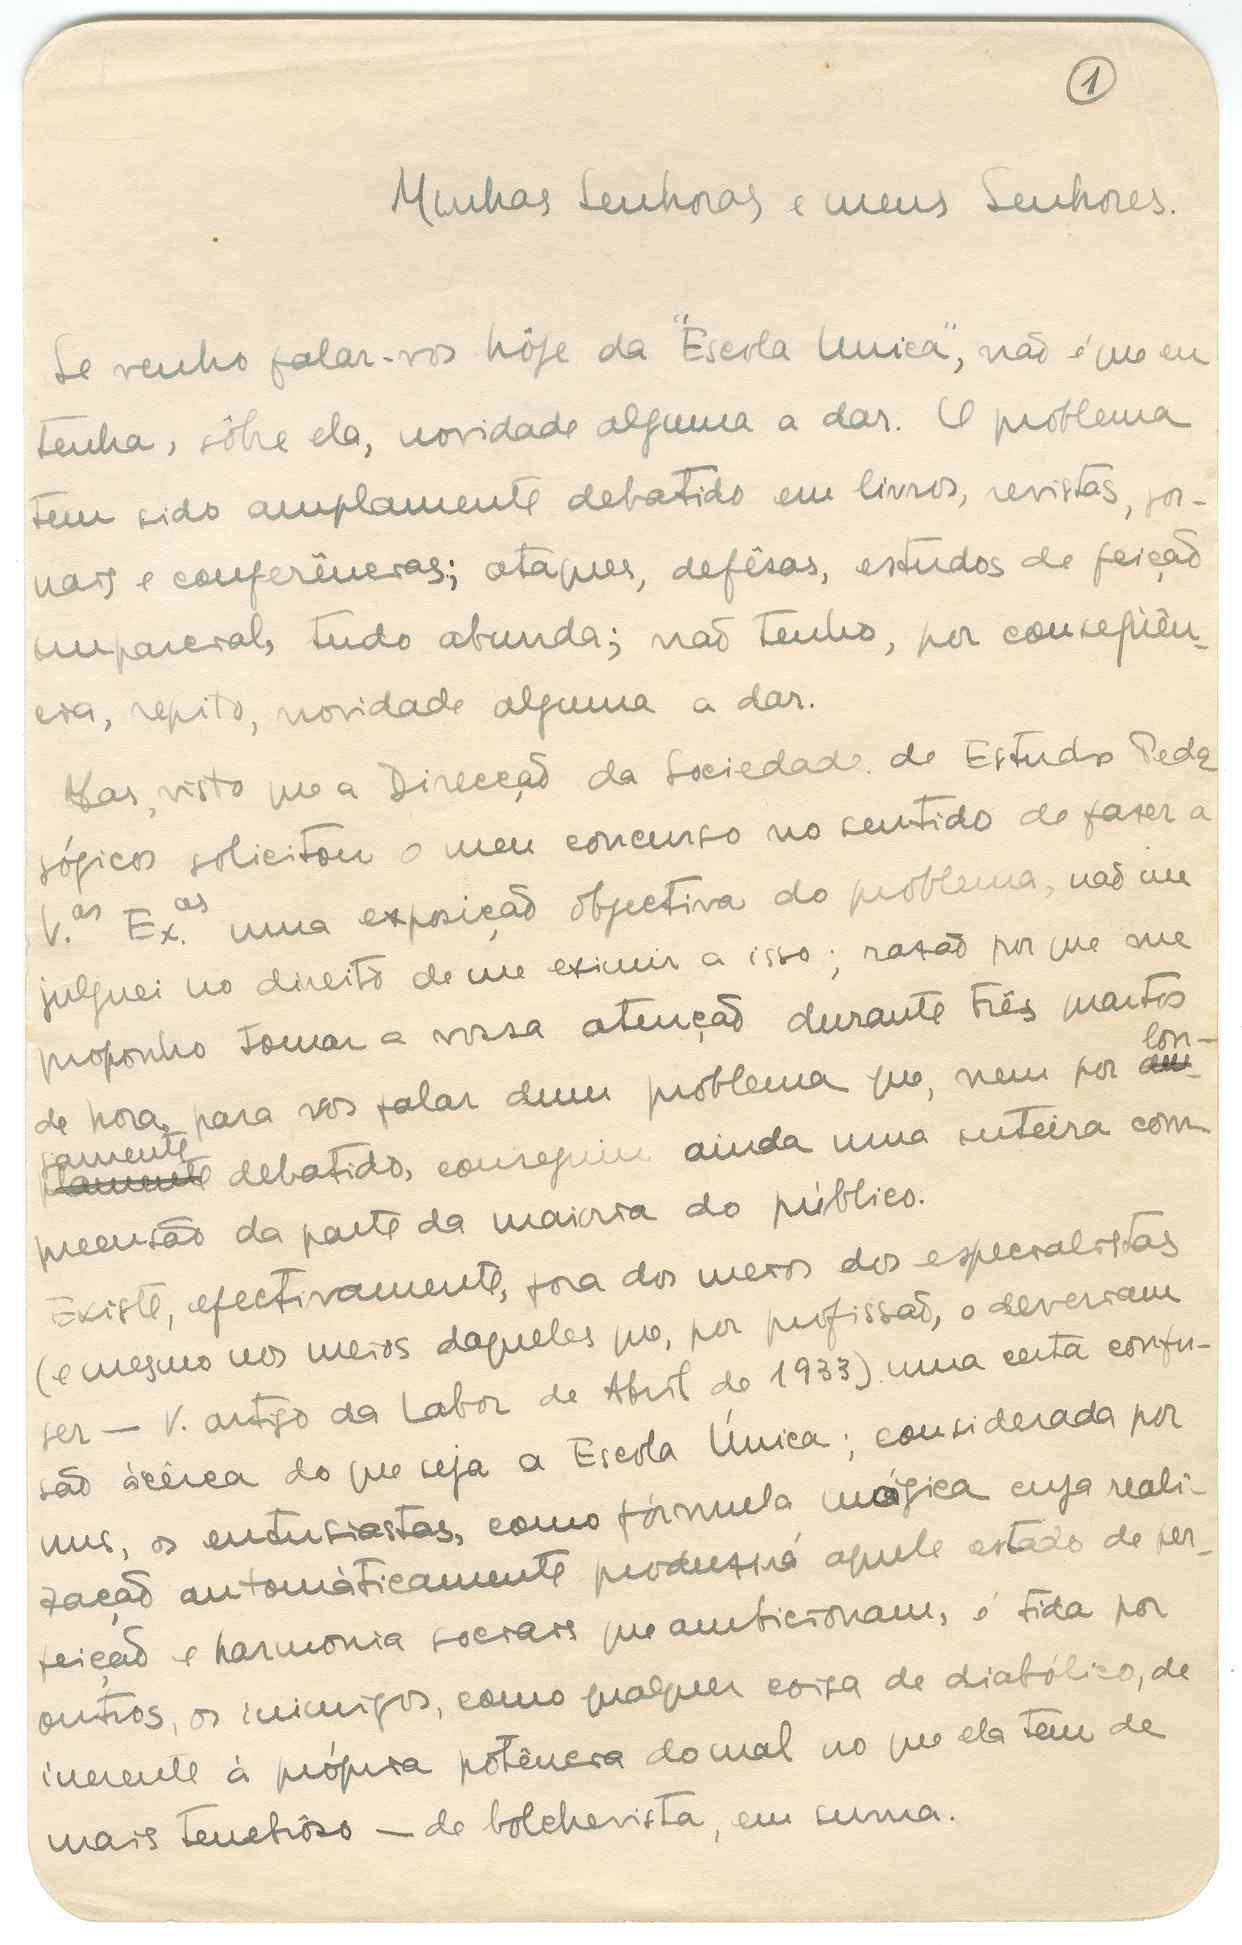 1
Minhas Senhoras e meus Senhores.
Se venho falar-vos hôje da "Escola Única", não é que eu
tenha, sôbre ela, novidade alguma a dar. O problema
tem sido amplamente debatido em livros, revistas, jor-
nais e conferências; ataques, defêsas, estudos de feição
imparcial, tudo abunda; não tenho, por conseqüên-
cia, repito, novidade alguma a dar.
Mas, visto que a Direcção da Sociedade de Estudos Peda
gógicos solicitou o meu concurso no sentido de fazer a
V.as Ex.as uma exposição objectiva do problema, não me
julguei no direito de me eximir a isso; razão por que me
proponho tomar a vossa atenção durante três quartos
lon-
de hora, para vos falar dum problema que, nem por am-
gamente
plamente debatido, conseguiu ainda uma inteira com-
preensão da parte da maioria do público.
Existe, efectivamente, fora dos meios dos especialistas
(e mesmo nos meios daqueles que, por profissão, o deveriam
ser — V. artigo da Labor de Abril de 1933) uma certa confu-
são àcêrca do que seja a Escola Única; considerada por
uns, os entusiastas, como fórmula mágica cuja reali-
zação automàticamente produzirá aquele estado de per-
feição e harmonia sociais que ambicionam, é tida por
outros, os inimigos, como qualquer coisa de diabólico, de
inerente à própria potência do mal no que ela tem de
mais tenebrôso — de bolchevista, em suma.